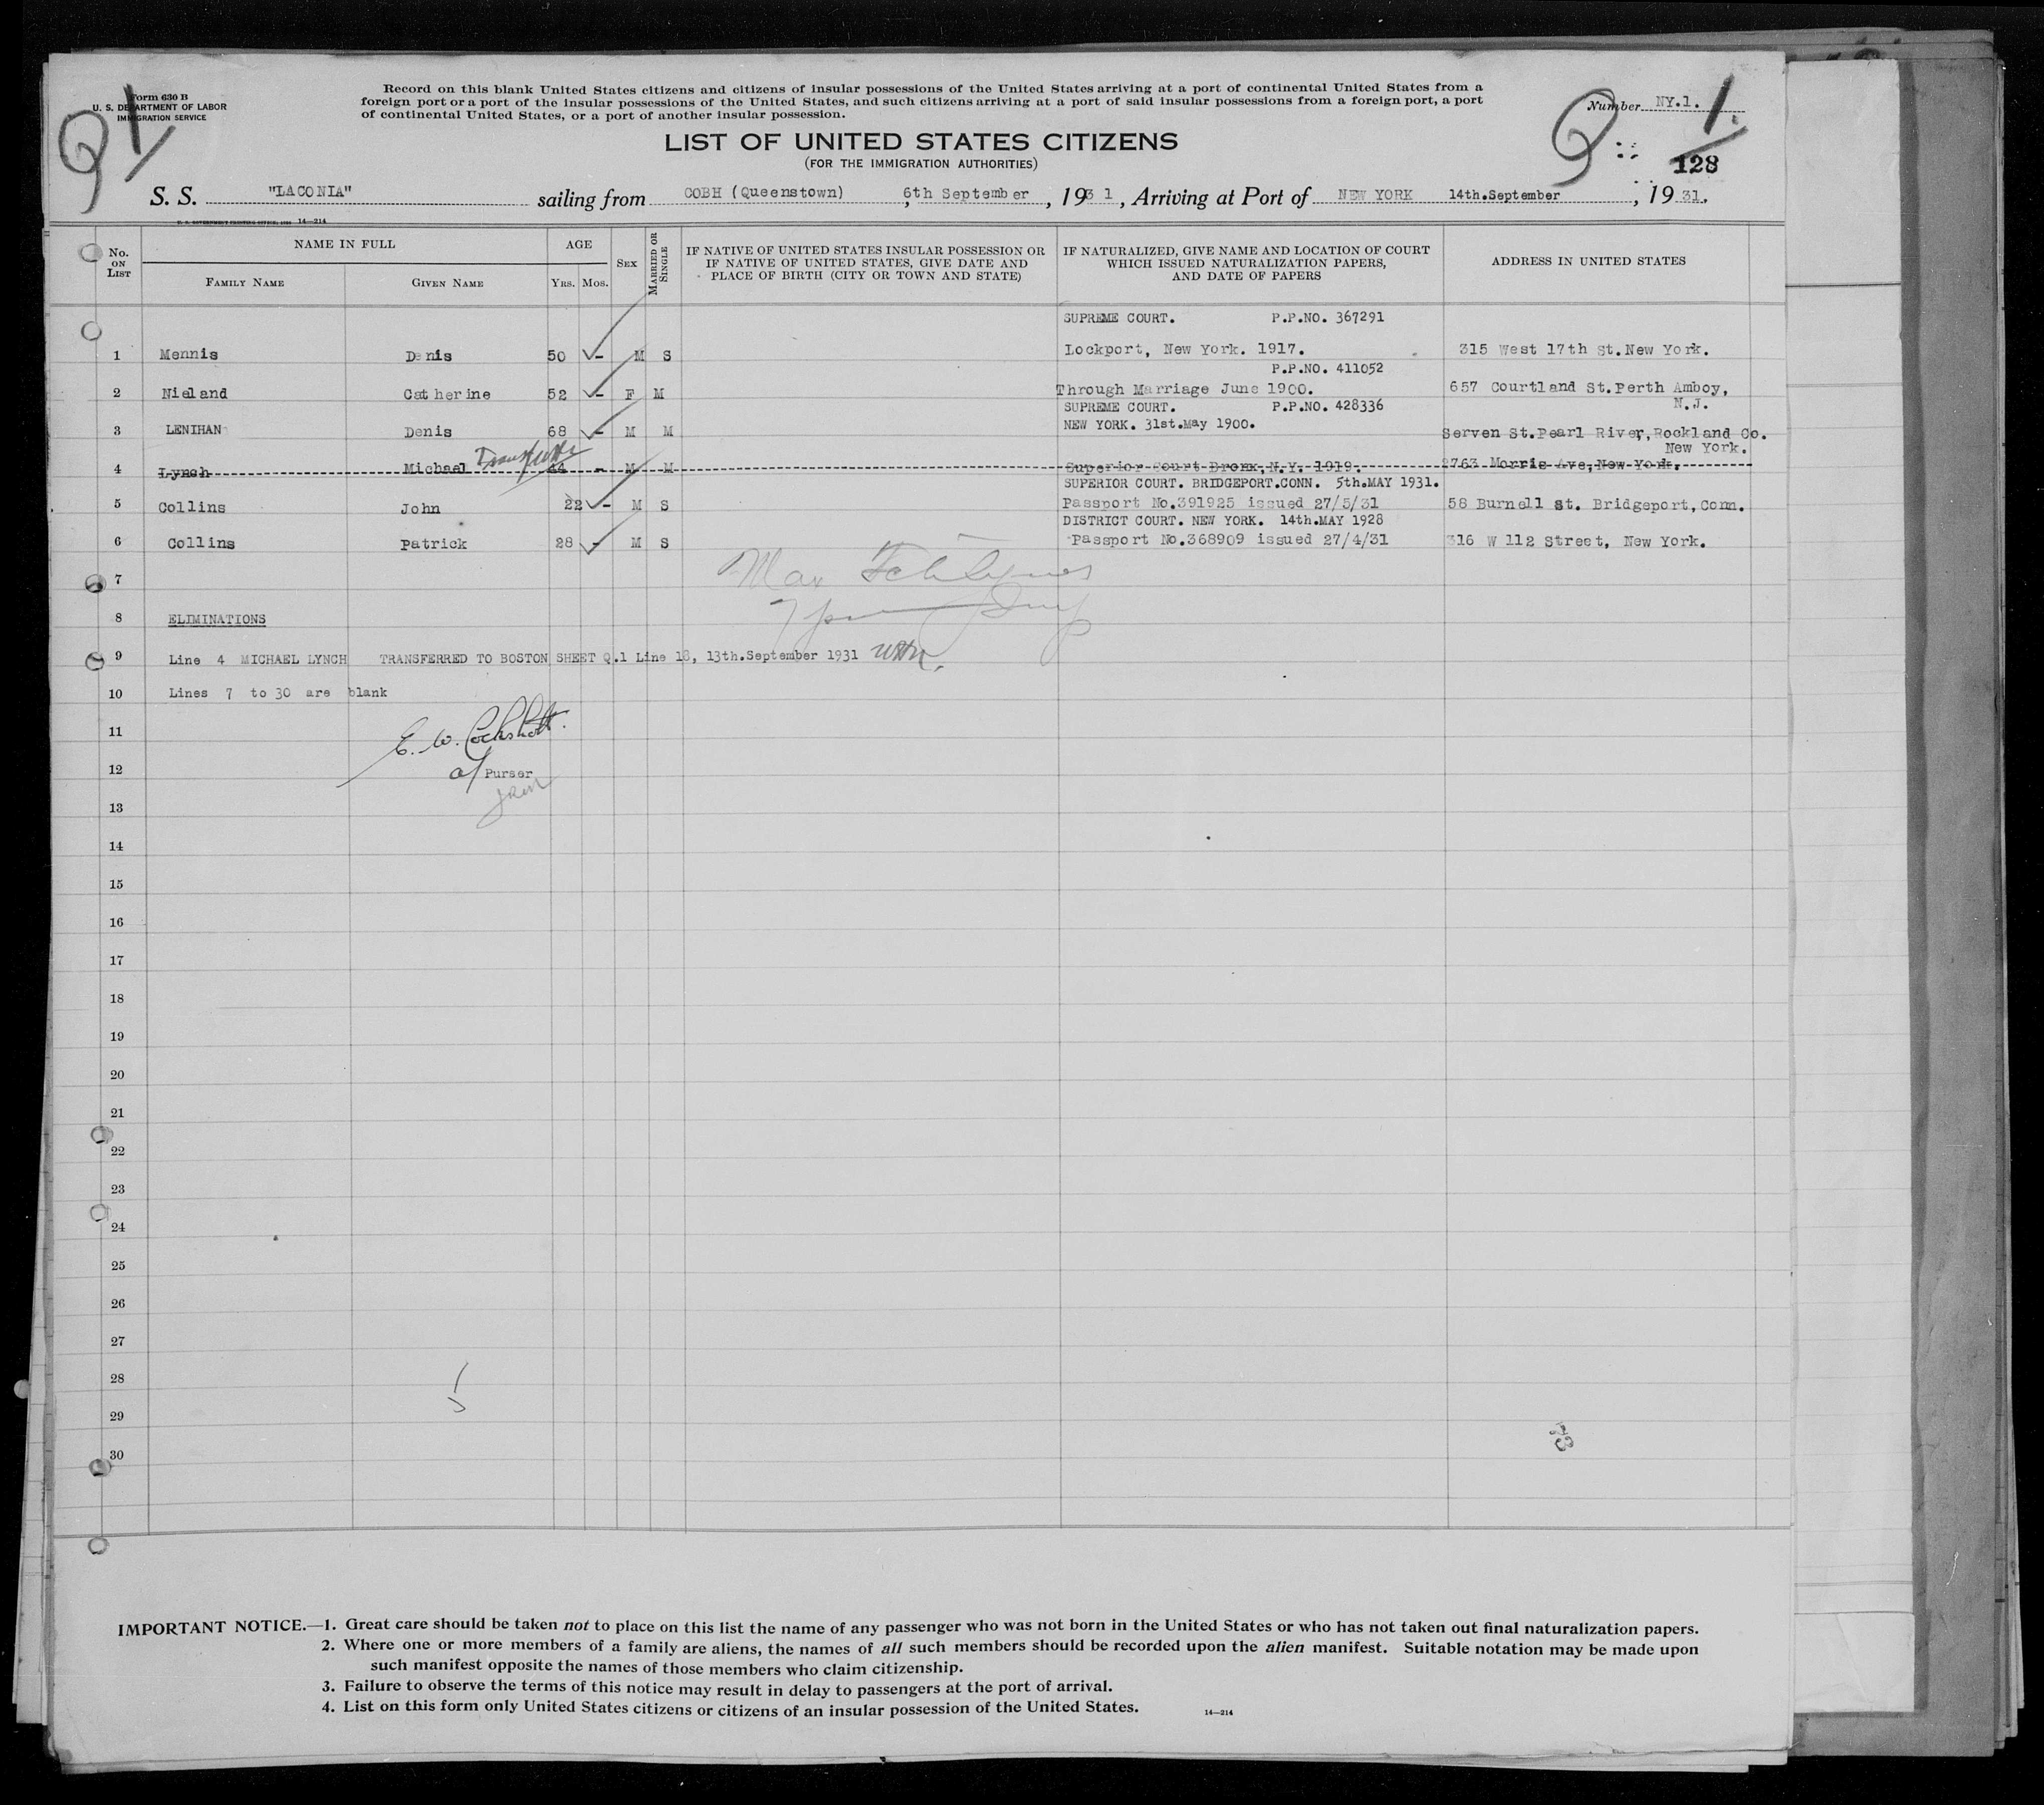 Form 630 B
U. S. DEPARTMENT OF LABOR
IMMIGRATION SERVICE
Record on this blank United States citizens and citizens of insular possessions of the United States arriving at a port of continental United States from a
foreign port or a port of the insular possessions of the United States, and such citizens arriving at a port of said insular possessions from a foreign port, a port
of continental United States, or a port of another insular possession.
Number NY.1.
Q 1
Q 1.
128
LIST OF UNITED STATES CITIZENS
(FOR THE IMMIGRATION AUTHORITIES)
S. S. "LACONIA" sailing from COBH (Queenstown) 6th September, 1931, Arriving at Port of NEW YORK 14th.September, 1931.
U. S. GOVERNMENT PRINTING OFFICE, 1930 14—214
No. ON LIST
NAME IN FULL
FAMILY NAME
GIVEN NAME
AGE
YRS. MOS.
SEX
MARRIED OR SINGLE
IF NATIVE OF UNITED STATES INSULAR POSSESSION OR
IF NATIVE OF UNITED STATES, GIVE DATE AND
PLACE OF BIRTH (CITY OR TOWN AND STATE)
IF NATURALIZED, GIVE NAME AND LOCATION OF COURT
WHICH ISSUED NATURALIZATION PAPERS,
AND DATE OF PAPERS
ADDRESS IN UNITED STATES
SUPREME COURT. P.P.NO. 367291
1 Mennis Denis 50 - M S Lockport, New York. 1917. 315 West 17th St.New York.
P.P.NO. 411052
2 Nieland Catherine 52 - F M Through Marriage June 1900. 657 Courtland St.Perth Amboy,
SUPREME COURT. P.P.NO. 428336 N.J.
3 LENIHAN Denis 68 - M M NEW YORK. 31st.May 1900. Serven St.Pearl River, Rockland Co.
New York.
4 Lynch Michael 44 - M M Superior Court Bronx, N.Y. 1919. 2763 Morris Ave, New York.
SUPERIOR COURT. BRIDGEPORT.CONN. 5th.MAY 1931.
5 Collins John 22 - M S Passport No.391925 issued 27/5/31 58 Burnell st. Bridgeport, Conn.
DISTRICT COURT. NEW YORK. 14th.MAY 1928
6 Collins Patrick 28 - M S Passport No.368909 issued 27/4/31 316 W 112 Street, New York.
7
8 ELIMINATIONS
9 Line 4 MICHAEL LYNCH TRANSFERRED TO BOSTON SHEET Q.1 Line 18, 13th.September 1931
10 Lines 7 to 30 are blank
11 E. W. Cockshott.
12 a/ Purser
13
14
15
16
17
18
19
20
21
22
23
24
25
26
27
28
29
30
73
IMPORTANT NOTICE.—1. Great care should be taken not to place on this list the name of any passenger who was not born in the United States or who has not taken out final naturalization papers.
2. Where one or more members of a family are aliens, the names of all such members should be recorded upon the alien manifest. Suitable notation may be made upon
such manifest opposite the names of those members who claim citizenship.
3. Failure to observe the terms of this notice may result in delay to passengers at the port of arrival.
4. List on this form only United States citizens or citizens of an insular possession of the United States.
14—214